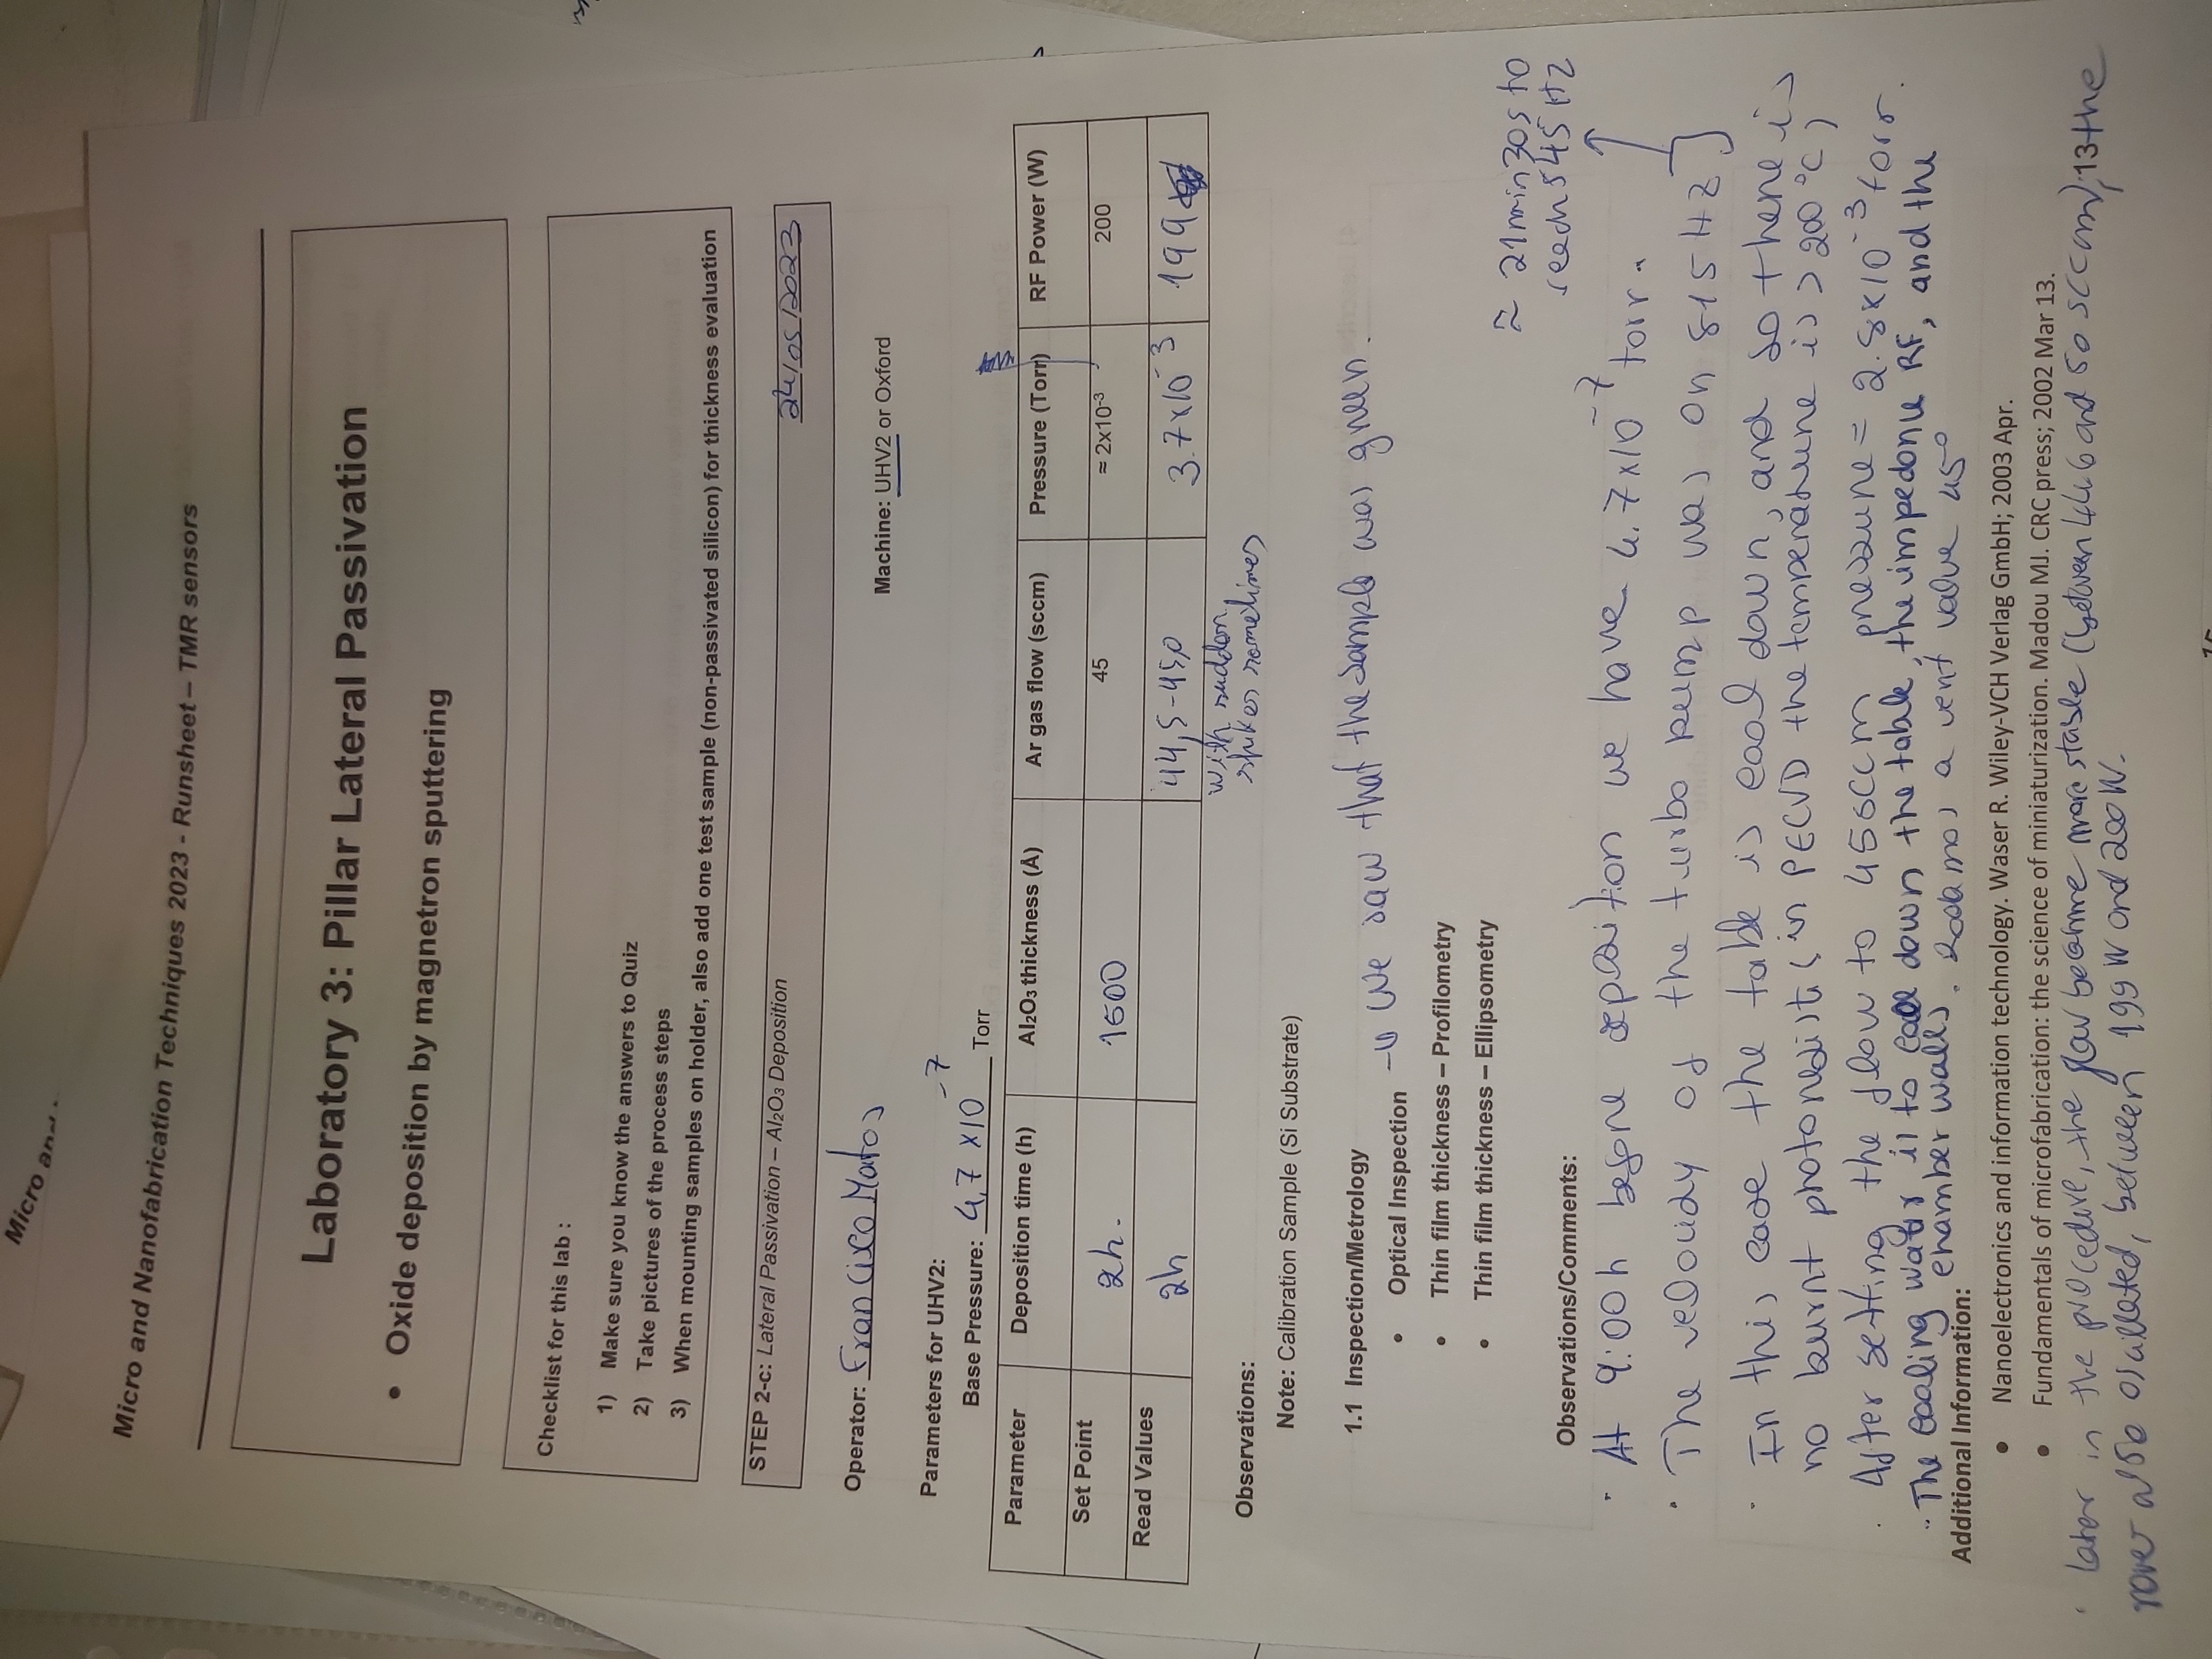 Micro and
Micro and Nanofabrication Techniques 2023 - Runsheet – TMR sensors
Laboratory 3: Pillar Lateral Passivation
• Oxide deposition by magnetron sputtering
Checklist for this lab :
1) Make sure you know the answers to Quiz
2) Take pictures of the process steps
3) When mounting samples on holder, also add one test sample (non-passivated silicon) for thickness evaluation
STEP 2-c: Lateral Passivation – Al₂O₃ Deposition
24/05/2023
Operator: Francisco Matos
Machine: UHV2 or Oxford
Parameters for UHV2:
Base Pressure: 4,7 ×10⁻⁷ Torr
Parameter Deposition time (h) Al₂O₃ thickness (Å) Ar gas flow (sccm) Pressure (Torr) RF Power (W)
Set Point 2h. 1500 45 ≈ 2x10⁻³ 200
Read Values 2h 44,5-45,0 3.7x10⁻³ 199
with sudden
spikes sometimes
Observations:
Note: Calibration Sample (Si Substrate)
1.1 Inspection/Metrology
• Optical Inspection → We saw that the sample was green.
• Thin film thickness – Profilometry
• Thin film thickness – Ellipsometry
≈ 21min30s to
reach 545 Hz
Observations/Comments:
· At 9:00h before deposition we have 4.7x10⁻⁷ torr.
· The velocidy of the turbo pump was on 815 Hz ]
· In this case the table is cool down, and so there is
no burnt photoresist (in PECVD the temperature is > 200 °C)
· After setting the flow to 45sccm pressure = 2.8x10⁻³ torr.
· The cooling water is to cool down the table, the impedance RF, and the
chamber walls. a vent value 45°
Additional Information:
• Nanoelectronics and information technology. Waser R. Wiley-VCH Verlag GmbH; 2003 Apr.
• Fundamentals of microfabrication: the science of miniaturization. Madou MJ. CRC press; 2002 Mar 13.
· later in the procedure, the flow became more stable (between 44.6 and 50 sccm); the
power also oscillated, between 199 W and 200W.
15